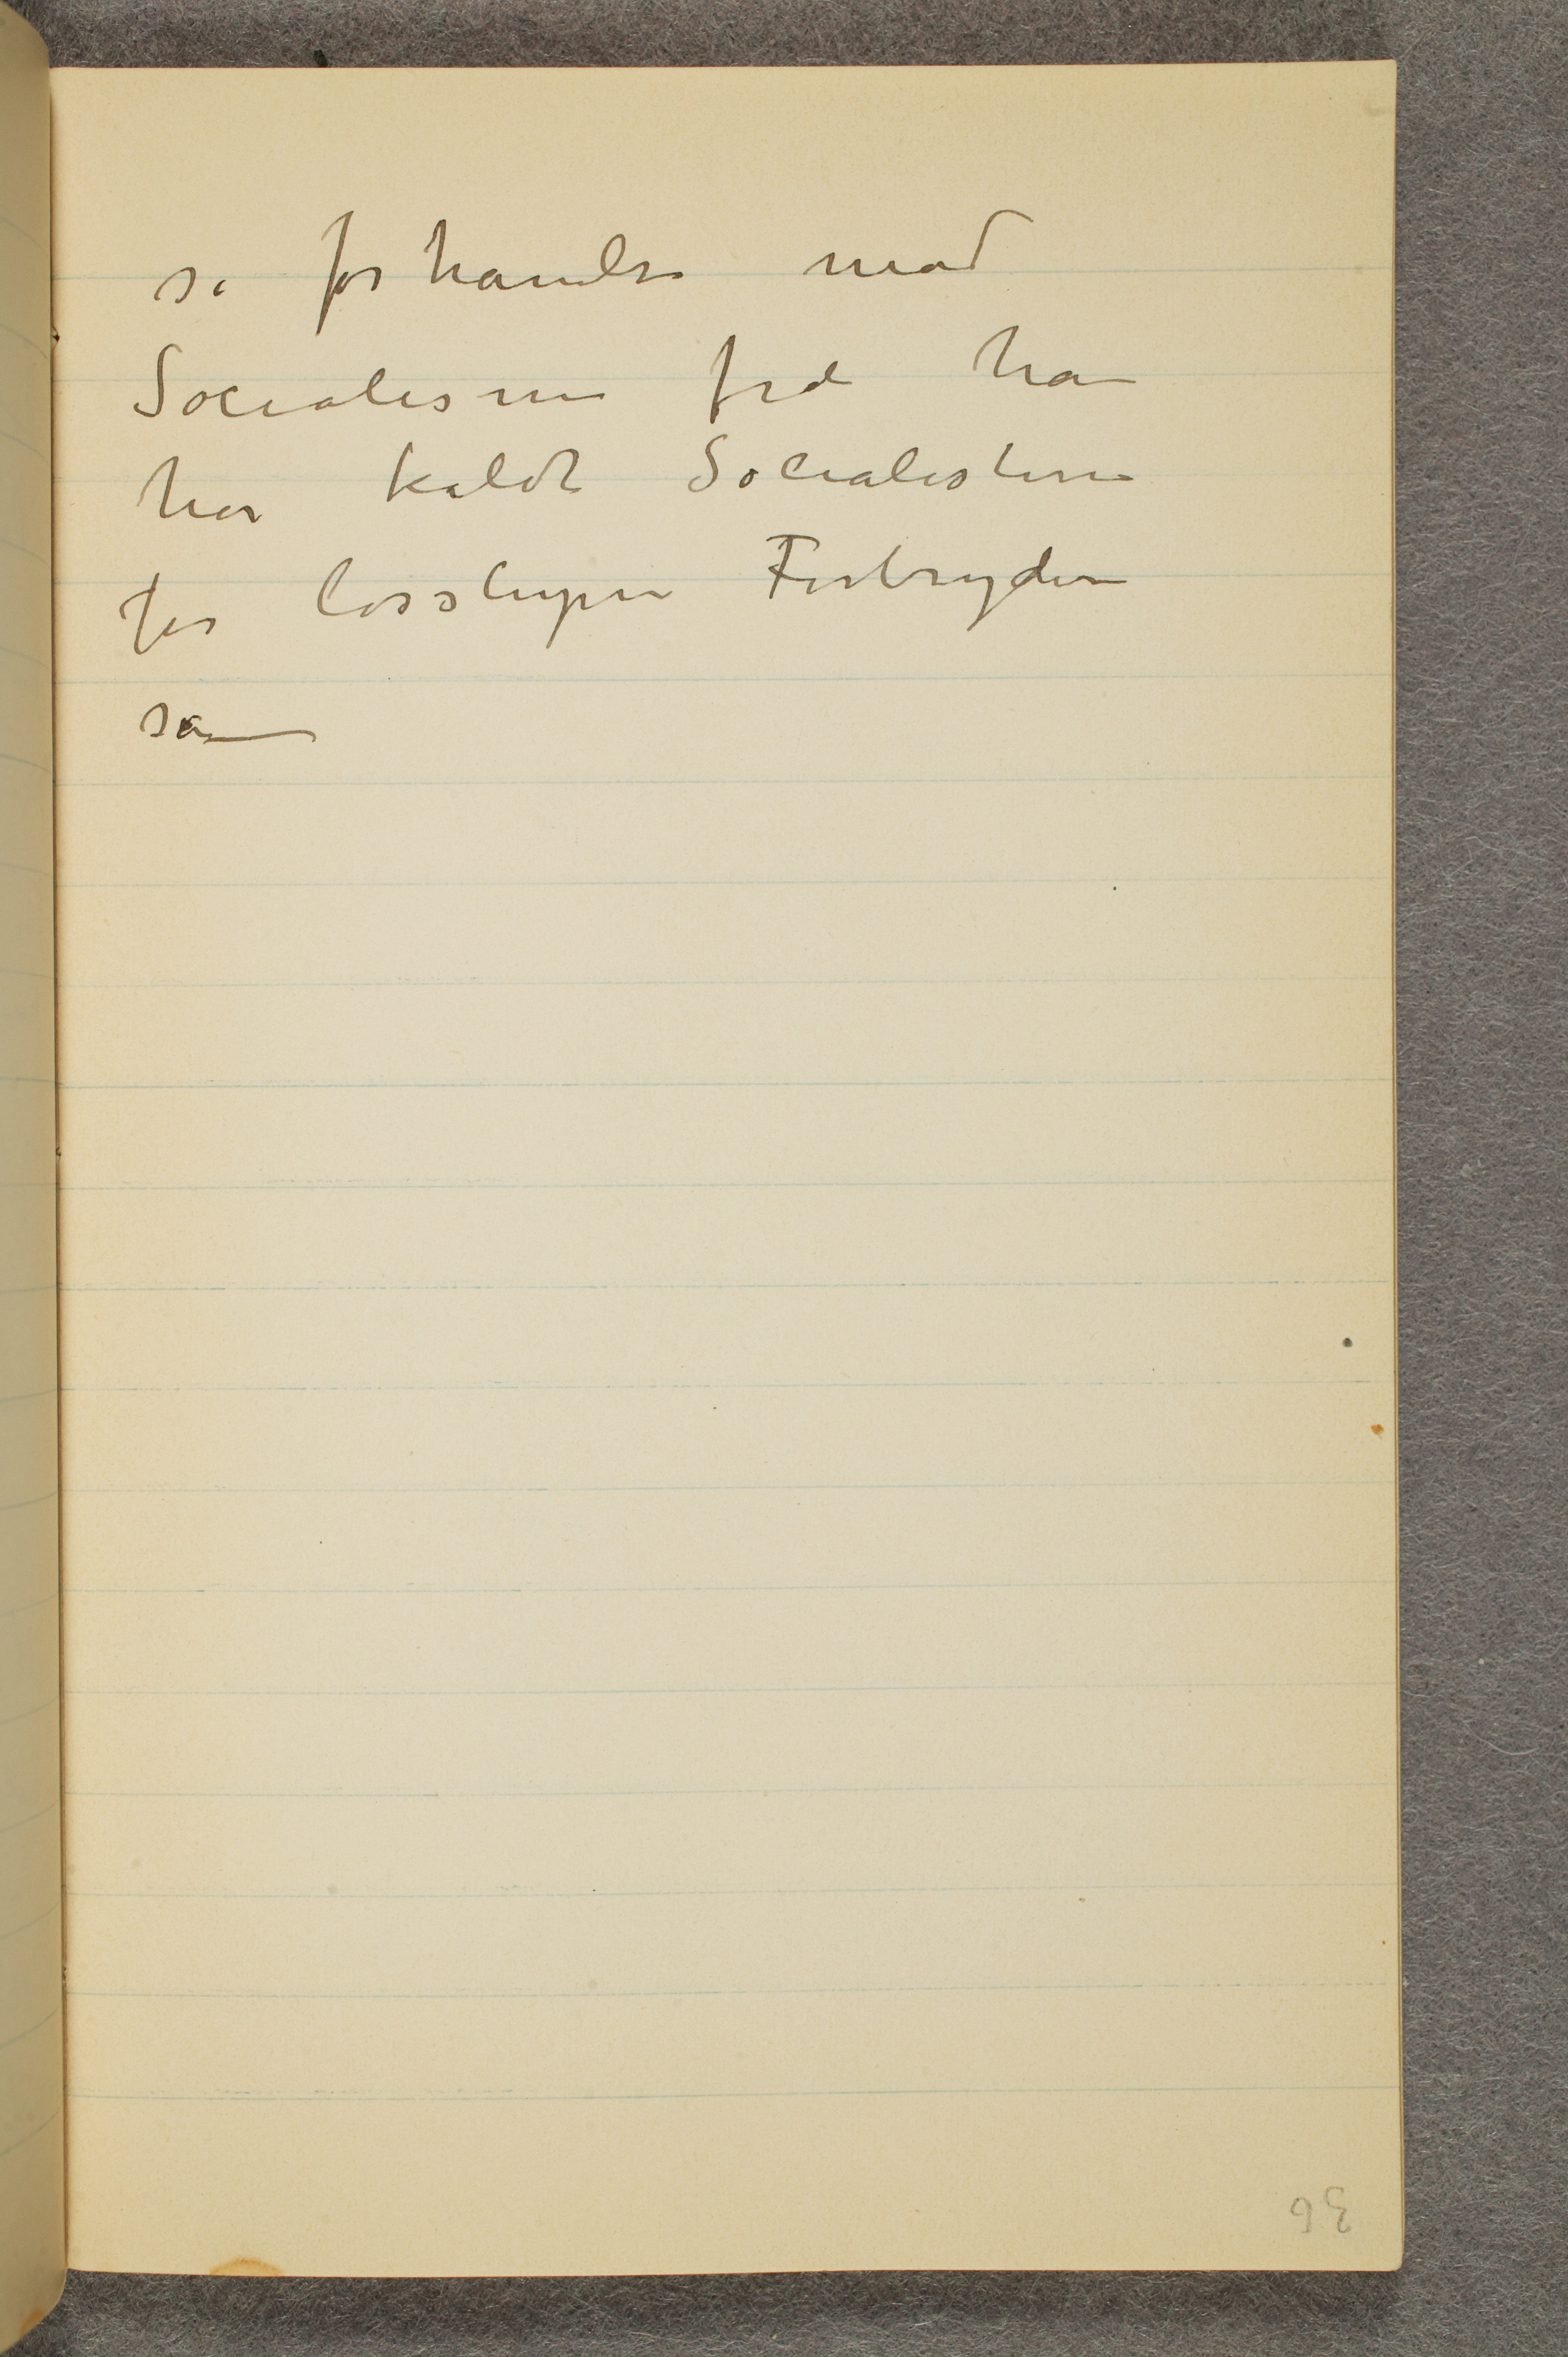 så forhandler med
Socialismen fordi han
har kaldt Socialisterne
for løsslupne Forbrydere
som
36